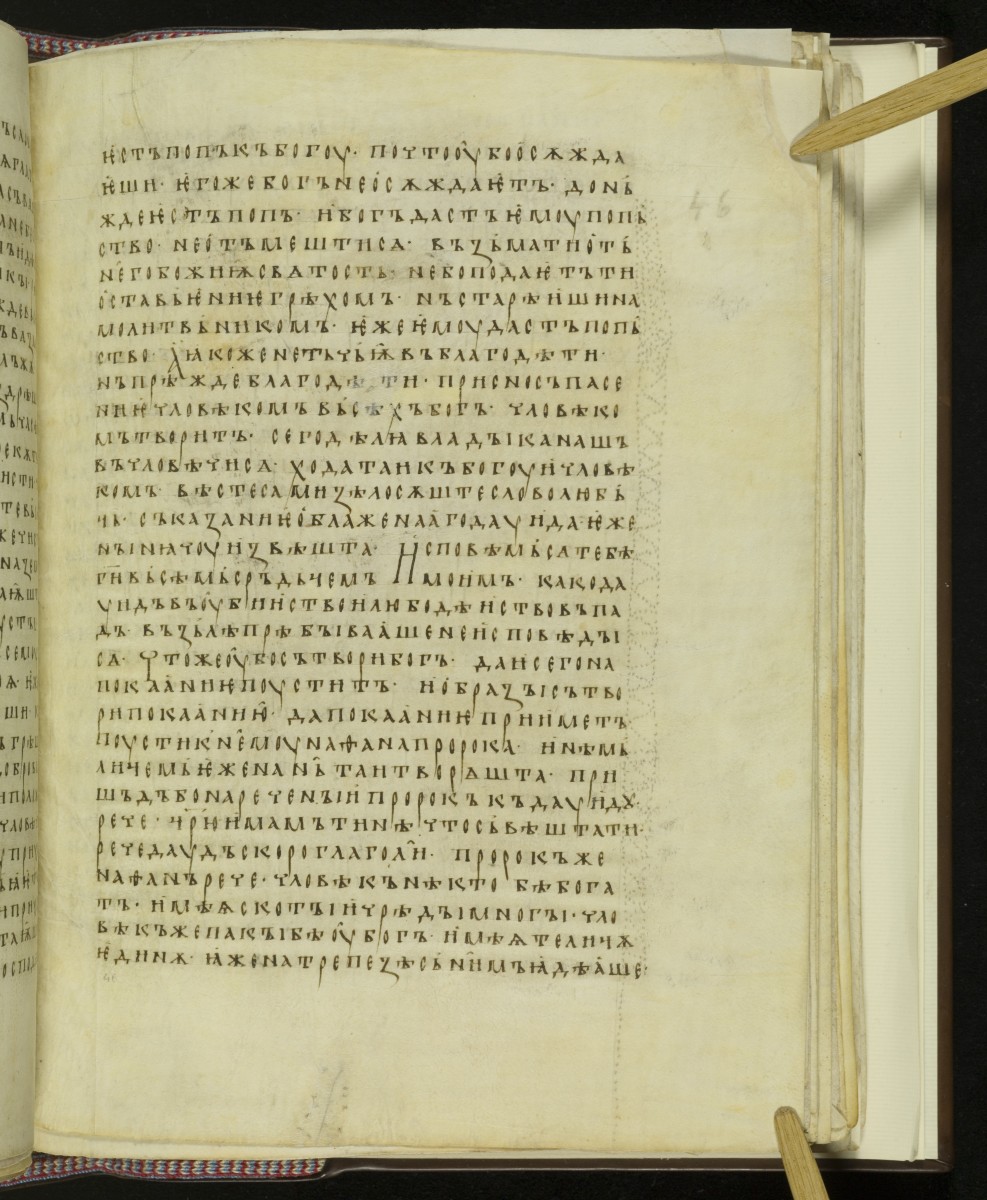 ѥстъ попъ къ богоу· по что оубо осѫжда
ѥши· ѥгоже богъ не осѫждаѥтъ· доньі
жде ѥстъ попъ· и богъ дастъ ѥмоу попь
ство· не отъмештисѧ· възьмати отъ
него божиѭ свѧтость· не бо подаѥтъ ти
оставьѥниѥ грѣхомъ· нъ старѣишина
молитвьникомъ· ѥже ѥмоу дастъ попь
ство· ꙗкоже не тъчьѭ въ благодѣти·
нъ прѣжде благодѣти· присно съпасе
ниѥ чловѣкомъ вьсѣхъ богъ· чловѣко
мъ творитъ· сего дѣлꙗ владꙑка нашъ
въчловѣчисѧ· ходатаи къ богоу и чловѣ
комъ· вѣсте сами ѕѣло сѫште словолюбь
чи· съказаниѥ о блаженааго даѵида· ѥже
нꙑнꙗ чоу извѣшта· Исповѣмьсѧ тебѣ
г҃и вьсѣмь сръдьчемъ моимъ· како да
ѵидъ въ оубииство и любодѣиство въпа
дъ· възълѣ прѣбꙑвааше не исповѣдꙑ
сѧ· чтоже оубо сътвори богъ· да и сего на
покааниѥ поуститъ· и образꙑ сътво
ри покаанию· да покааниѥ прииметъ·
поусти к немоу наѳана пророка· и нѣмь
личемь ѥже на нь таи творѧшта· при
шъдъ бо нареченꙑи пророкъ къ даѵидꙋ·
рече· ц҃рю имамъ ти нѣчто съвѣштати·
рече даѵдъ скоро глаголи· пророкъ же
наѳанъ рече· чловѣкъ нѣкто бѣ бога
тъ· имѣѩ скотꙑ и чрѣдꙑ многꙑ· чло
вѣкъ же пакꙑ бѣ оубогъ· имѣѩ телицѫ
ѥдинѫ· ꙗже на трепеѕѣ съ нимъ ꙗдѣаше·